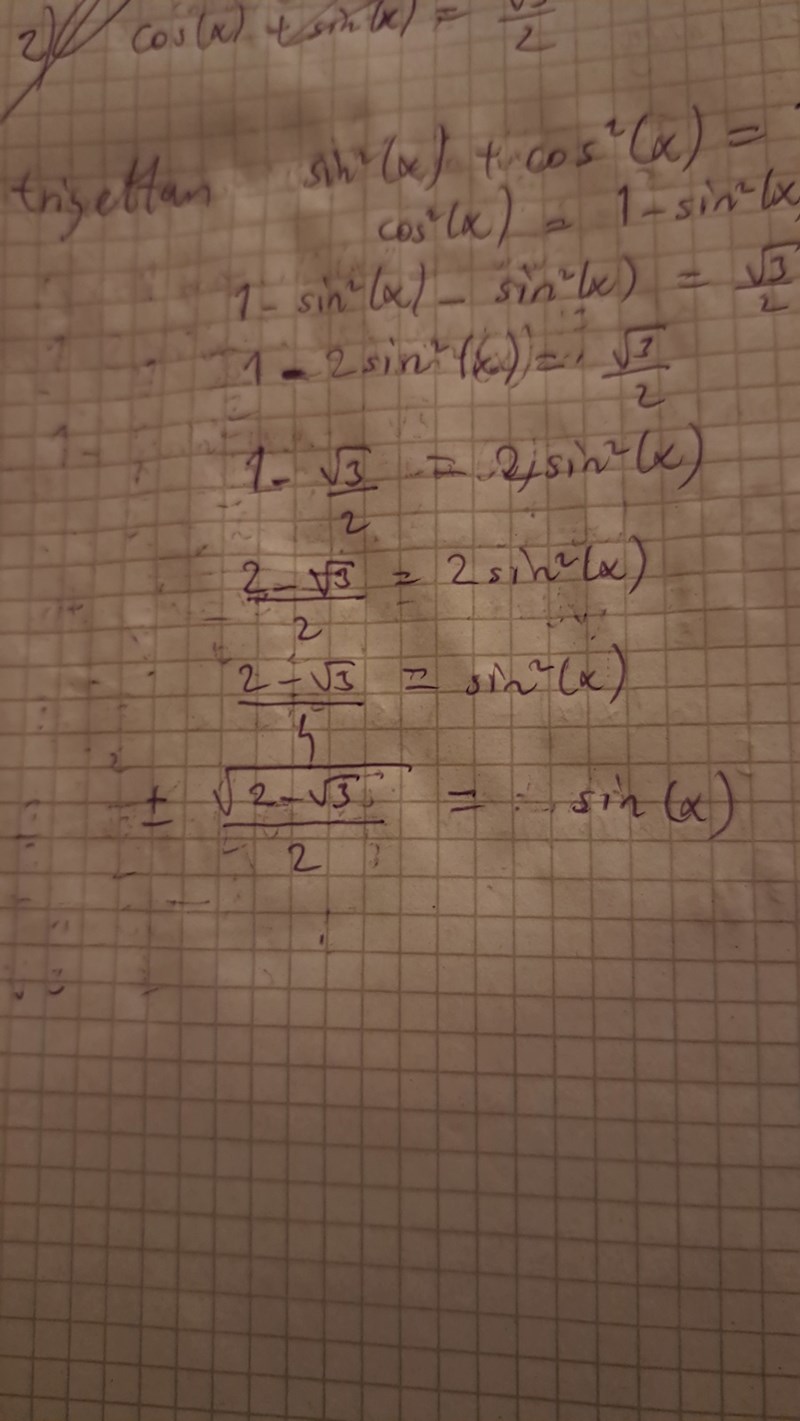 2) cos(x) + sin(x) = √3/2
trigettan sin²(x) + cos²(x) =
cos²(x) = 1 - sin²(x)
1 - sin²(x) - sin²(x) = √3/2
1 - 2sin²(x) = √3/2
1 - √3/2 = 2 sin²(x)
(2 - √3)/2 = 2 sin²(x)
(2 - √3)/4 = sin²(x)
± √(2 - √3)/2 = sin(x)